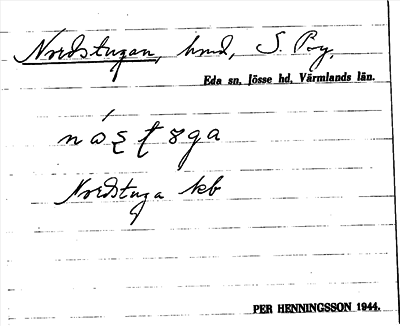 Nordstugan, hmd, S. By,
Eda sn, Jösse hd, Värmlands län.
Nordstuga kb
PER HENNINGSSON 1944.